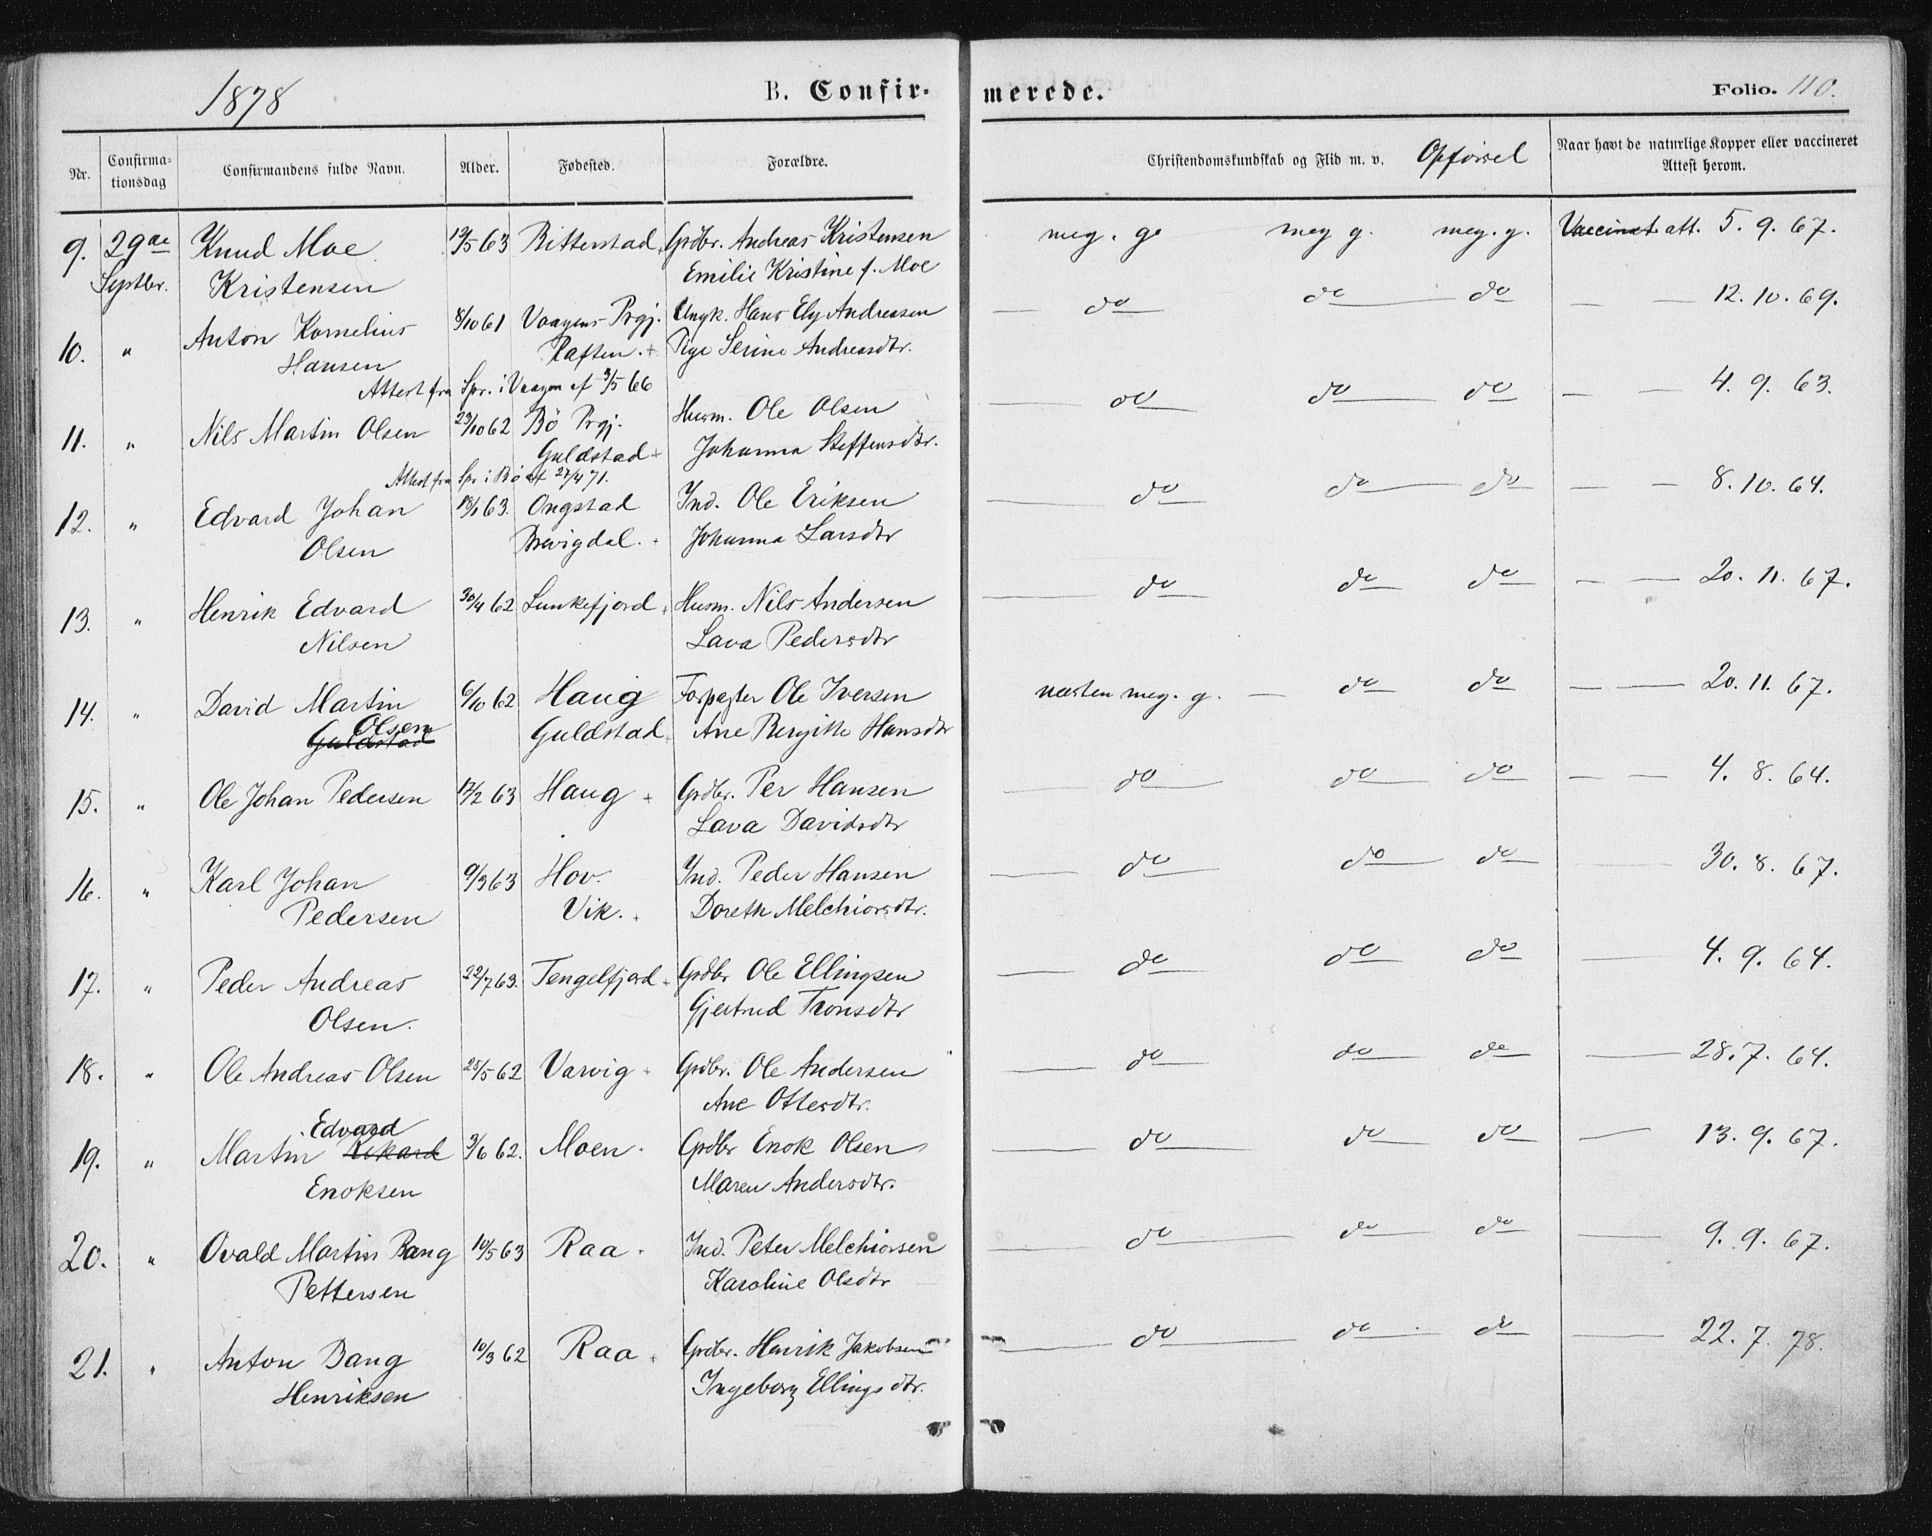 1878 B. Confir- merede. Folio. 110.
Nr. Confirma-tionsdag Confirmandens fulde Navn. Alder. Fødested. Forældre. Christendomskundskab og Flid m. v. Opførsel Naar havt de naturlige Kopper eller vaccineret Attest herom.
9. 29de Knud Moe 19/5 63 Ritterstad Grdbr. Andreas Kristensen meg. g. meg g. meg. g. Vaccinat. att. 5. 9. 67.
Septbr. Kristensen Emilie Kristine f. Moe
10. " Anton Kornelius 8/10 61 Vaagens Prgj. Ungk. Hans Ely Andreasen do do do 12. 10. 69.
Hansen Raften. Pige Serine Andreasdtr.
Attest fra Spr. i Vaagen af 3/5 66
11. " Nils Martin Olsen 23/10 62 Bø Prgj. Husm. Ole Olsen do do do 4. 9. 63.
Guldstad Johanna Steffensdtr.
Attest fra Spr i Bø af 27/4 71.
12. " Edvard Johan 18/1 63. Ongstad Ind. Ole Eriksen do do do 8. 10. 64.
Olsen Brevigdal. Johanna Larsdtr
13. " Henrik Edvard 30/4 62 Lunkefjord Husm. Nils Andersen do do do 20. 11. 67.
Nilsen Lava Pedersdtr
14. " David Martin 6/10 62 Haug Forpagter Ole Iversen næsten meg. g. do do 20. 11. 67.
Olsen
Guldstad Guldstad Ane Bergitte Hansdtr
15. " Ole Johan Pedersen 17/2 63 Haug Grdbr. Per Hansen do do do 4. 8. 64.
Lava Davidsdtr
16. " Karl Johan 9/3 63 Hov. Ind. Peder Hansen do do do 30. 8. 67.
Pedersen Vik. Doreth Melchiorsdtr.
17. " Peder Andreas 22/7 63. Tengelfjord Grdbr Ole Ellingsen do do do 4. 9. 64.
Olsen. Gjertrud Tronsdtr
18. " Ole Andreas Olsen 25/5 62 Varvig Grdbr. Ole Andersen do do do 28. 7. 64.
Ane Ottersdtr.
Edvard
19. " Martin 3/6 62. Moen Grdbr Enok Olsen do do do 13. 9. 67.
Enoksen Maren Andersdtr.
20. " Ovald Martin Bang 10/5 63 Raa Ind. Peter Melchiorsen do do do 9. 9. 67.
Pettersen Karoline Olsdtr
21. " Anton Bang 10/3 62 Raa Grdbr. Henrik Jakobsen do do do 22. 7. 78.
Henriksen Ingeborg Ellingsdtr.